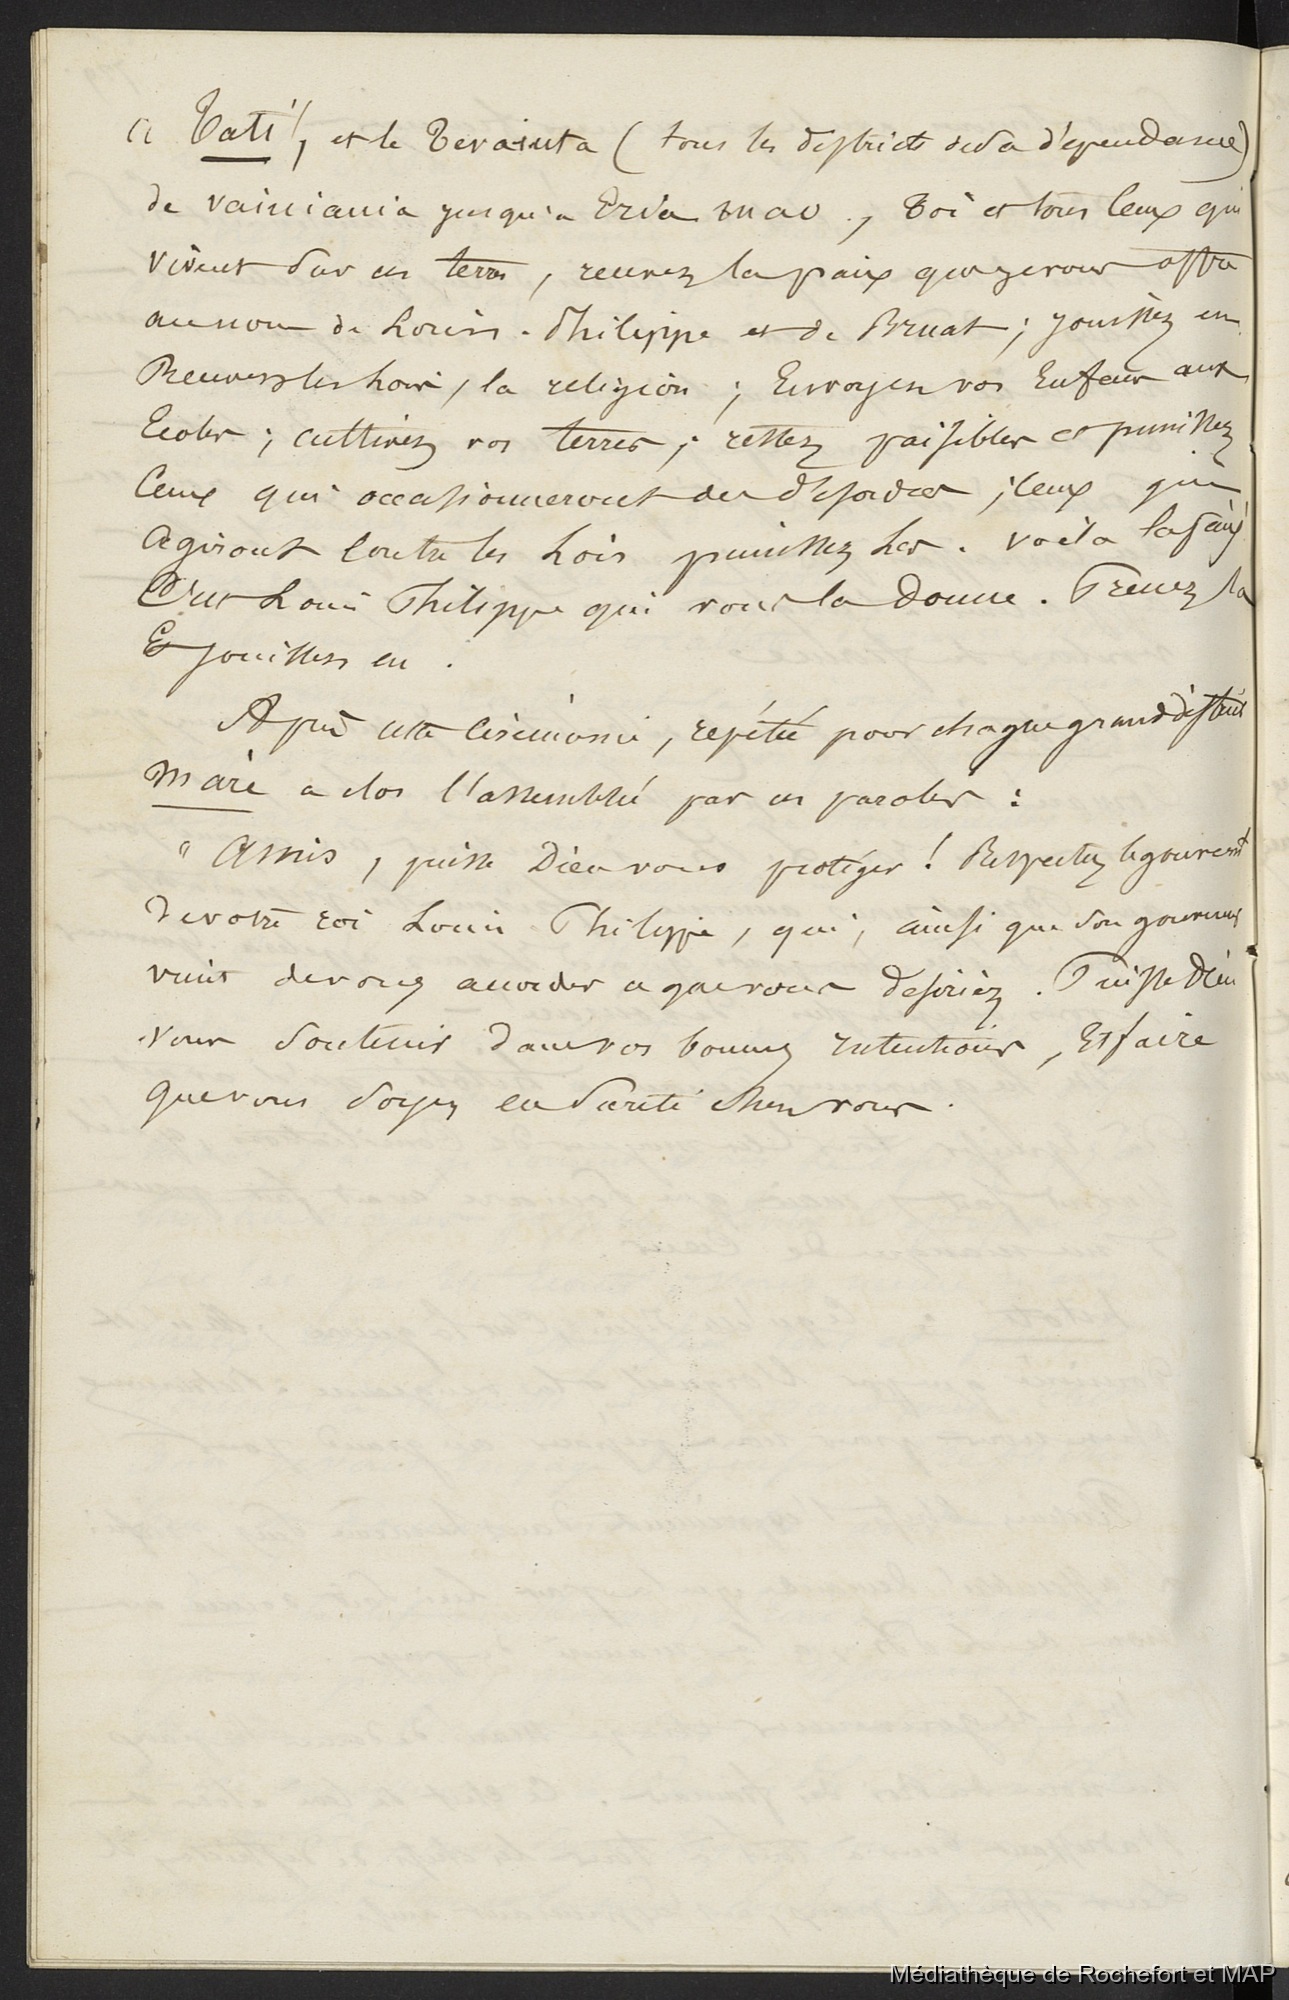 à Tati, et le Tevaiuta (tous les districts de sa dépendance)
de vainiania jusqu'a , toi et tous ceux qui
vivent sur ces terres, recevez la paix que je vous offre
au nom de Louis-Philippe et de Bruat ; jouissez en.
Recevez les Lois, la religion ; Envoyez vos Enfans aux
Ecoles ; cultivez vos terres ; restez paisibles et punissez
Ceux qui occasionneront des désordres ; Ceux qui
Agiront contre les Lois punissez les. voila la paix
C'est Louis Philippe qui vous la donne. Prenez la
Et jouissez en.
Après cette cérémonie, répétée pour chaque grand district
Maré a clos l'assemblée par ces paroles :
" Amis, puisse Dieu vous protéger ! Respectez le gouvernt
de votre roi Louis Philippe, qui, ainsi que son gouverneur
vient de vous accorder ce que vous desiriez. Puisse Dieu
vous soutenir dans vos bonnes intentions, Et faire
que vous soyez en sureté chez vous.
Médiathèque de Rochefort et MAP